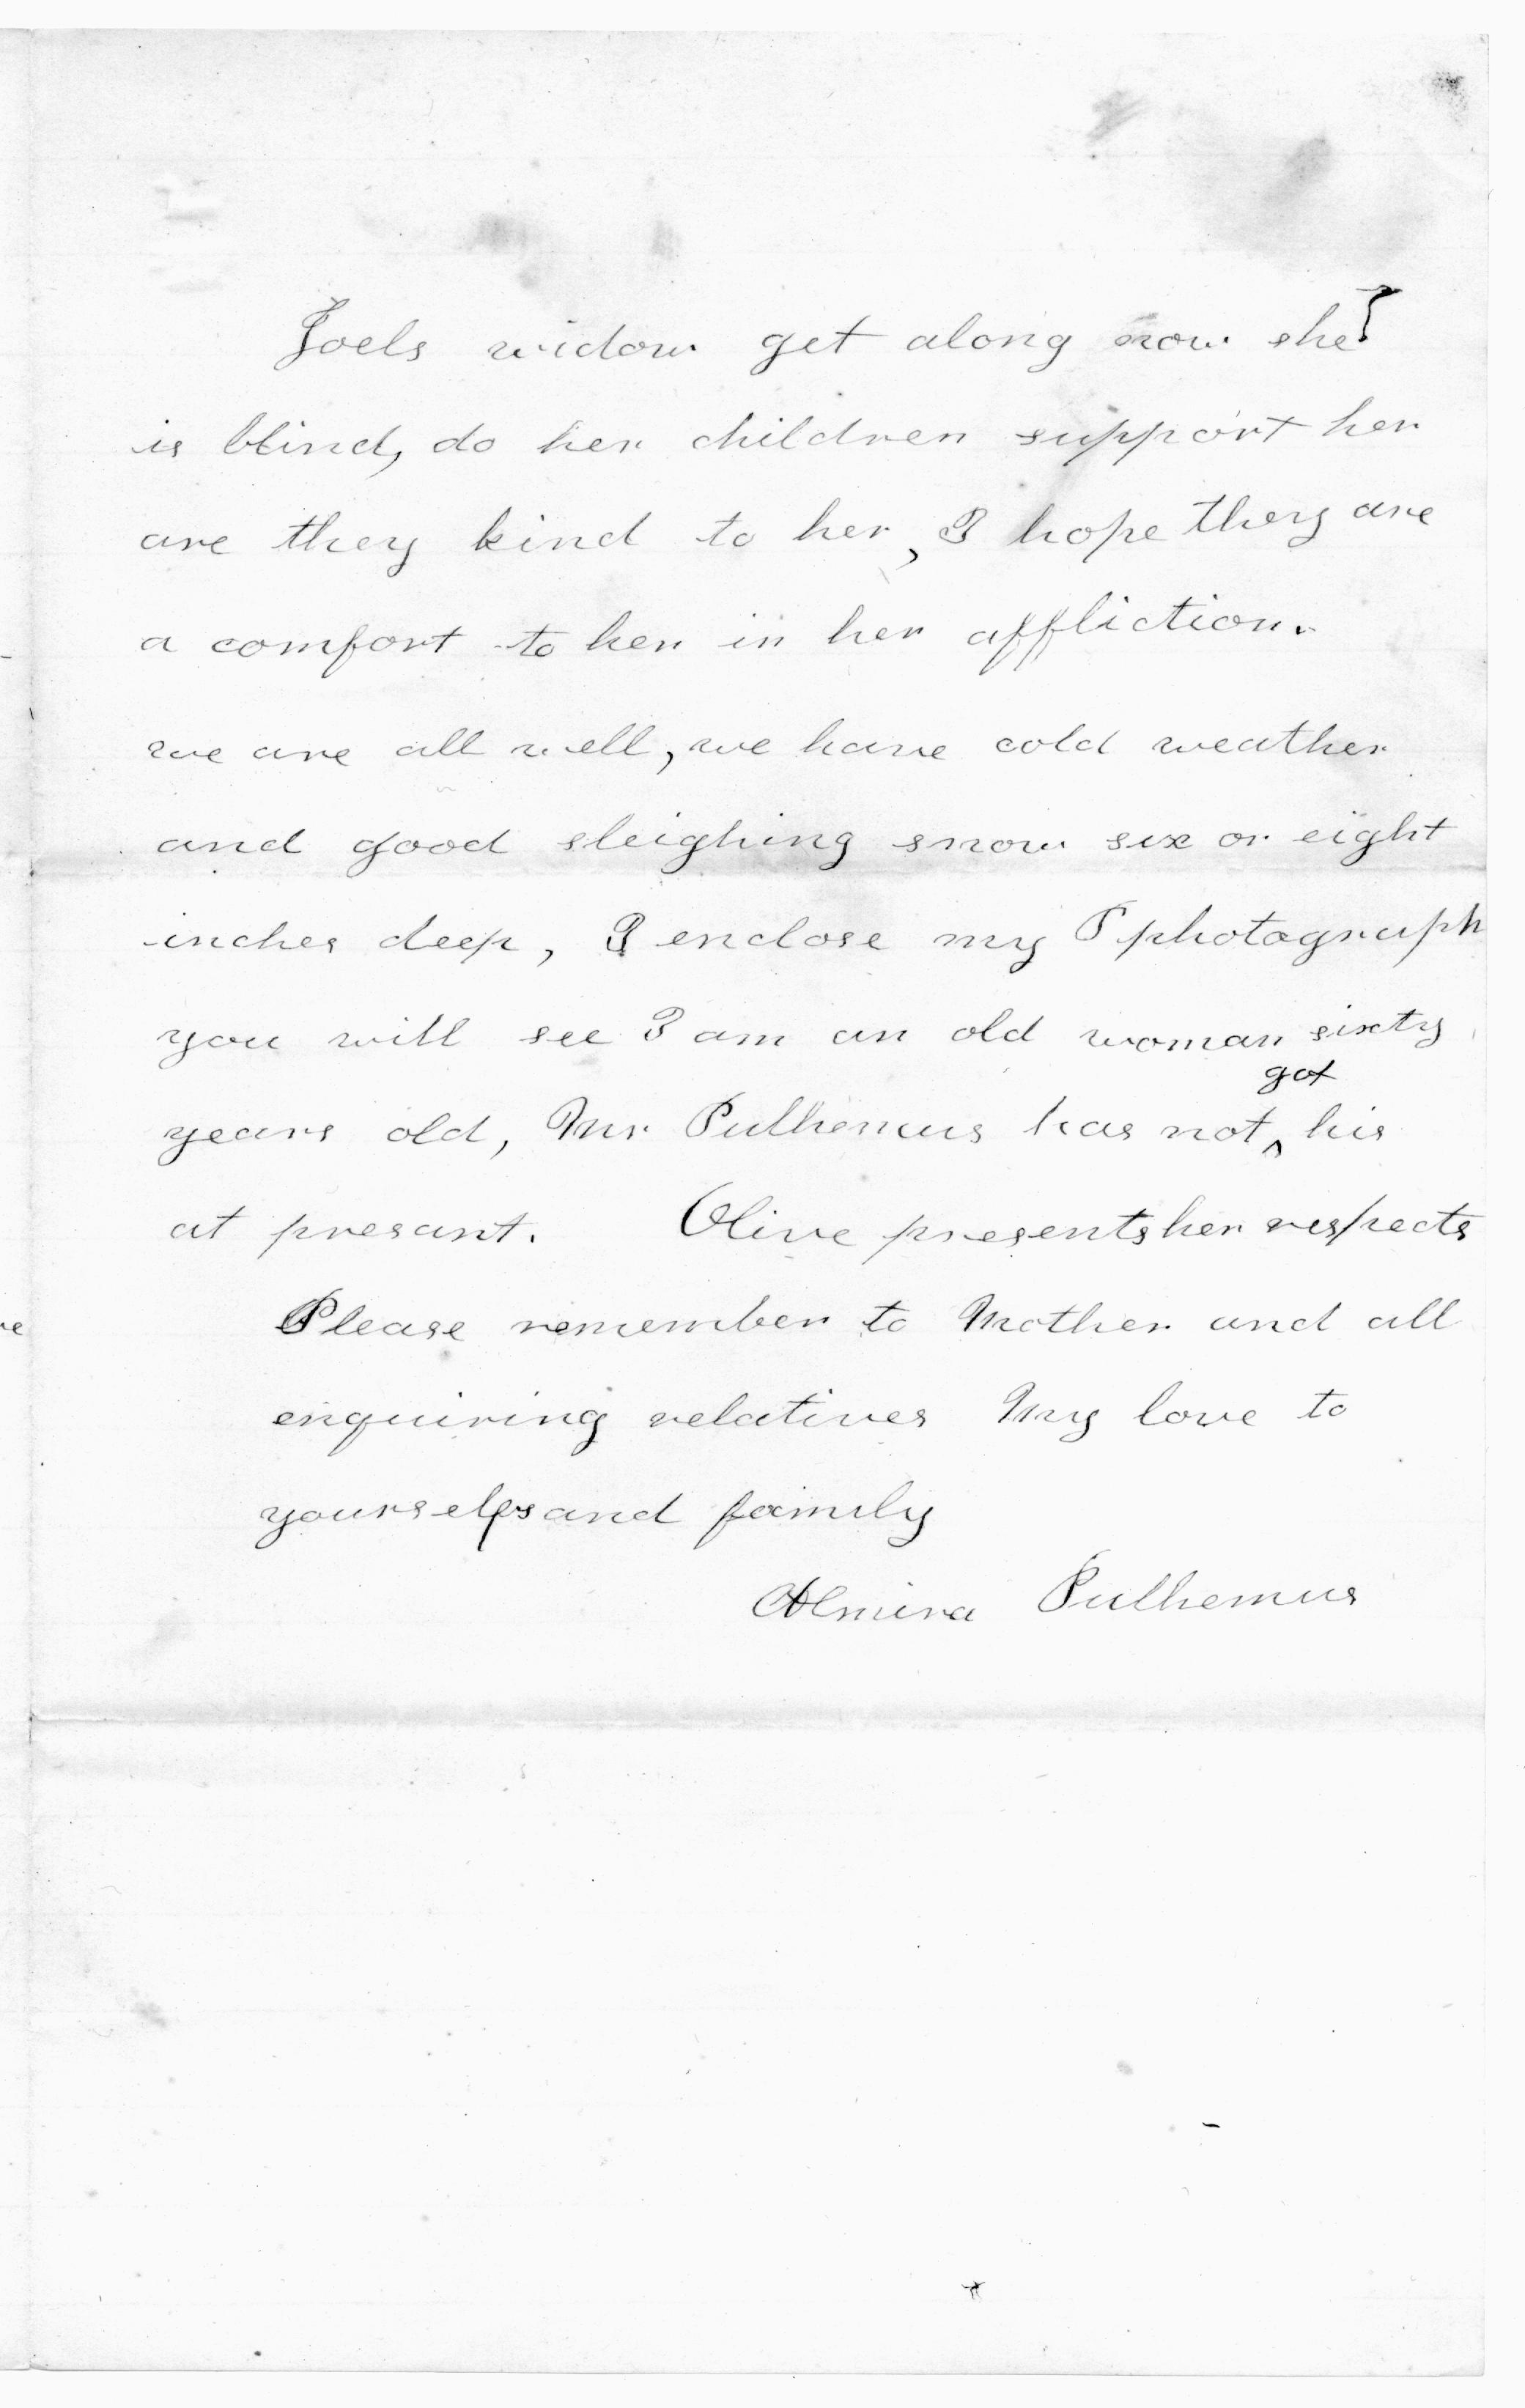 Joels widow get along now she?
is blind, do her children support her
are they kind to her, I hope they are
a comfort to her in her affliction.
we are all well, we have cold weather
and good sleighing snow six or eight
inches deep, I enclose my Photograph
you will see I am an old woman sixty
years old, Mr Pulhemus has not ^got his
at presant. Olive presents her respects
Please remember to Mother and all
enquiring relatives My love to
yourselfs and family
Almira Pulhemus